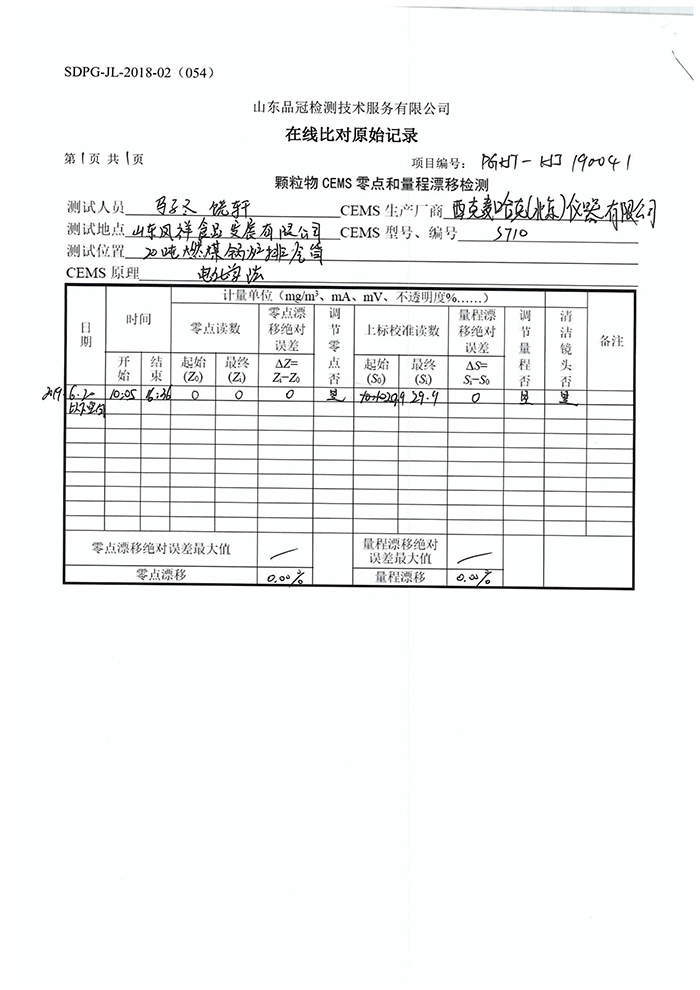 SDPG-JL-2018-02（054）
山东品冠检测技术服务有限公司
在线比对原始记录
第1页 共1页 项目编号：PGHJ-HJ190041
颗粒物 CEMS 零点和量程漂移检测
测试人员 CEMS 生产厂商 西克麦哈克(北京)仪器有限公司
测试地点 山东凤祥食品发展有限公司 CEMS 型号、编号 S710
测试位置 20吨燃煤锅炉排气筒
CEMS 原理 电化学法
日期 时间 计量单位（mg/m³、mA、mV、不透明度%……） 清洁镜头否 备注
零点读数 零点漂移绝对误差 调节零点否 上标校准读数 量程漂移绝对误差 调节量程否
开始 结束 起始(Z₀) 最终(Z₁) ΔZ=Z₁-Z₀ 起始(S₀) 最终(S₁) ΔS=S₁-S₀
2019.6.20 10:05 16:36 0 0 0 是 29.9 29.9 0 是 是
以下空白
零点漂移绝对误差最大值 / 量程漂移绝对误差最大值 /
零点漂移 0.00% 量程漂移 0.00%